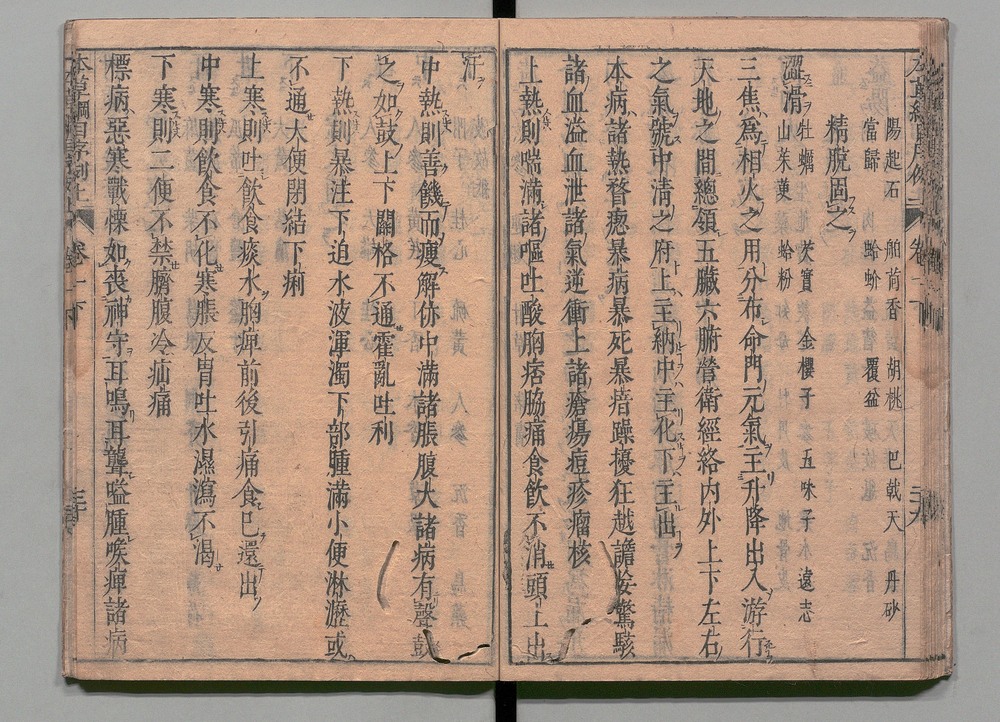 陽起石 舶茴香 胡桃 巴戟天 丹砂
當歸 蛤蚧 覆盆
精脫固之
澀滑 牡蠣 芡實 金櫻子 五味子 遠志
山茱萸 蛤粉
三焦為相火之用分布命門元氣主升降出入游行
天地之間總領五臟六腑營衛經絡內外上下左右
之氣號中清之府上主納中主化下主出
本病諸熱瞀瘛暴病暴死暴瘖躁擾狂越譫妄驚駭
諸血溢血泄諸氣逆衝上諸瘡瘍痘疹瘤核
上熱則喘滿諸嘔吐酸胸痞脇痛食飲不消頭上出
汗
中熱則善饑而瘦解㑊中滿諸脹腹大諸病有聲鼓
之如鼓上下關格不通霍亂吐利
下熱則暴注下迫水液渾濁下部腫滿小便淋瀝或
不通大便閉結下痢
上寒則吐飲食痰水胸痺前後引痛食已還出
中寒則飲食不化寒脹反胃吐水濕瀉不渴
下寒則二便不禁臍腹冷疝痛
標病惡寒戰慄如喪神守耳鳴耳聾嗌腫喉痺諸病
本草綱目序例上 卷一下